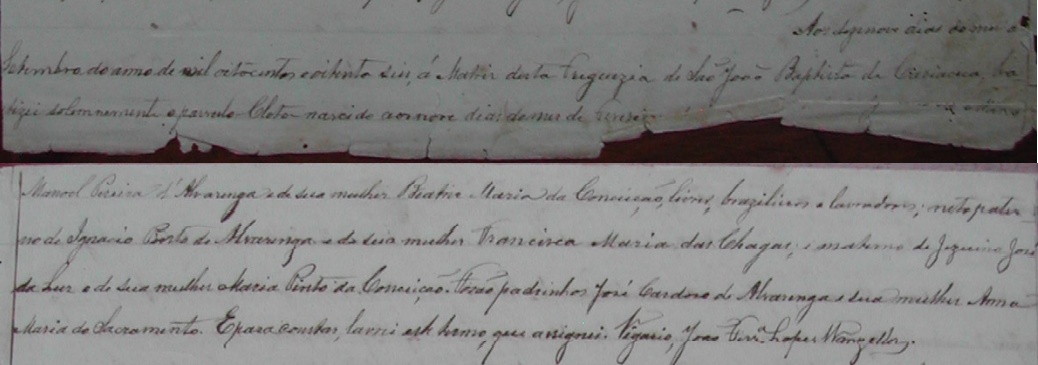 Aos desenove dias do mes d
Setembro do anno de mil oitocentos e oitenta seis, á Matriz desta Freguezia de São João Baptista de Cariacica, ba
tizei solemnemente o parvulo Cleto nascido aos nove dias do mes de
Manoel Pereira d'Alvarenga e de sua mulher Beatriz Maria da Conceição, livres, brazileiros e lavradores; neto pater
no de Ignacio Porto de Alvarenga e de sua mulher Francisca Maria das Chagas; e materno de Jezuino José
da Luz e de sua mulher Maria Pinto da Conceição. Forão padrinhos José Cardoso de Alvarenga e sua mulher Anna
Maria do Sacramento. E para constar, lavrei este termo, que assignei. Vigario, João Ferrª. Lopes Wanzeller.